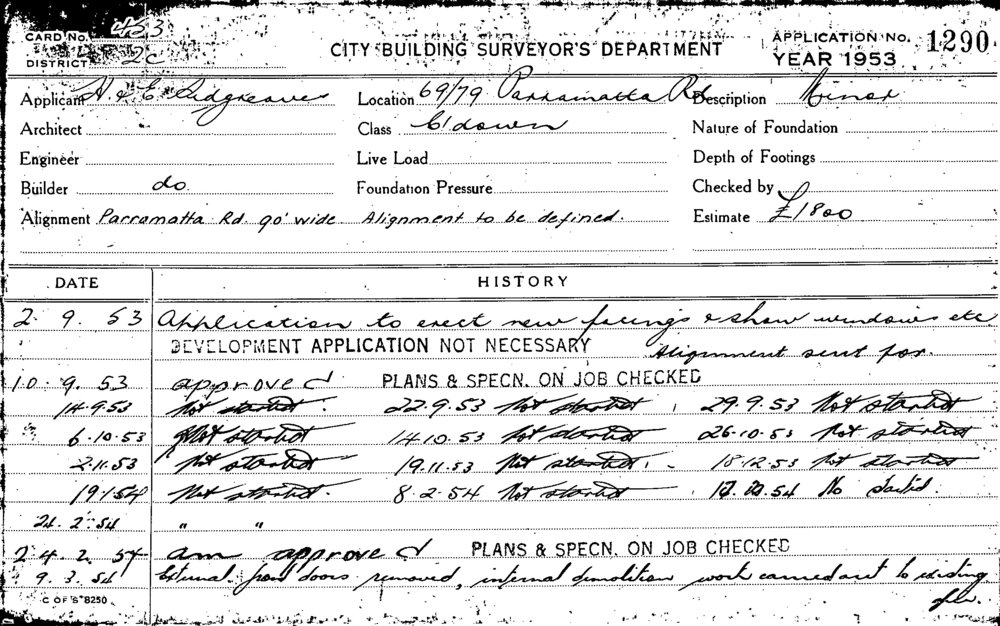 CARD No. 453
DISTRICT 2c
CITY BUILDING SURVEYOR'S DEPARTMENT
APPLICATION No. 1290
YEAR 1953
Applicant H & E Sidgreaves Location 69/79 Parramatta Rd Description Minor
Architect Class C'down Nature of Foundation
Engineer Live Load Depth of Footings
Builder do. Foundation Pressure Checked by
Alignment Parramatta Rd. 90' wide. Alignment to be defined. Estimate £1800
DATE HISTORY
2. 9. 53 Application to erect new facings & show windows etc
DEVELOPMENT APPLICATION NOT NECESSARY Alignment sent for.
10. 9. 53 approved PLANS & SPECN. ON JOB CHECKED
14.9.53 Not started. 22.9.53 Not started. 29.9.53 Not started
6.10.53 Not started 14.10.53 Not started 26.10.53 Not started
2.11.53 Not started 19.11.53 Not started. 18.12.53 Not started
19.1.54 Not started. 8.2.54 Not started. .54 No
2.54 " "
24. 2. 54 am approved PLANS & SPECN. ON JOB CHECKED
9. 3. 54 External front doors removed, internal demolition work carried out to existing
C OF S 8250